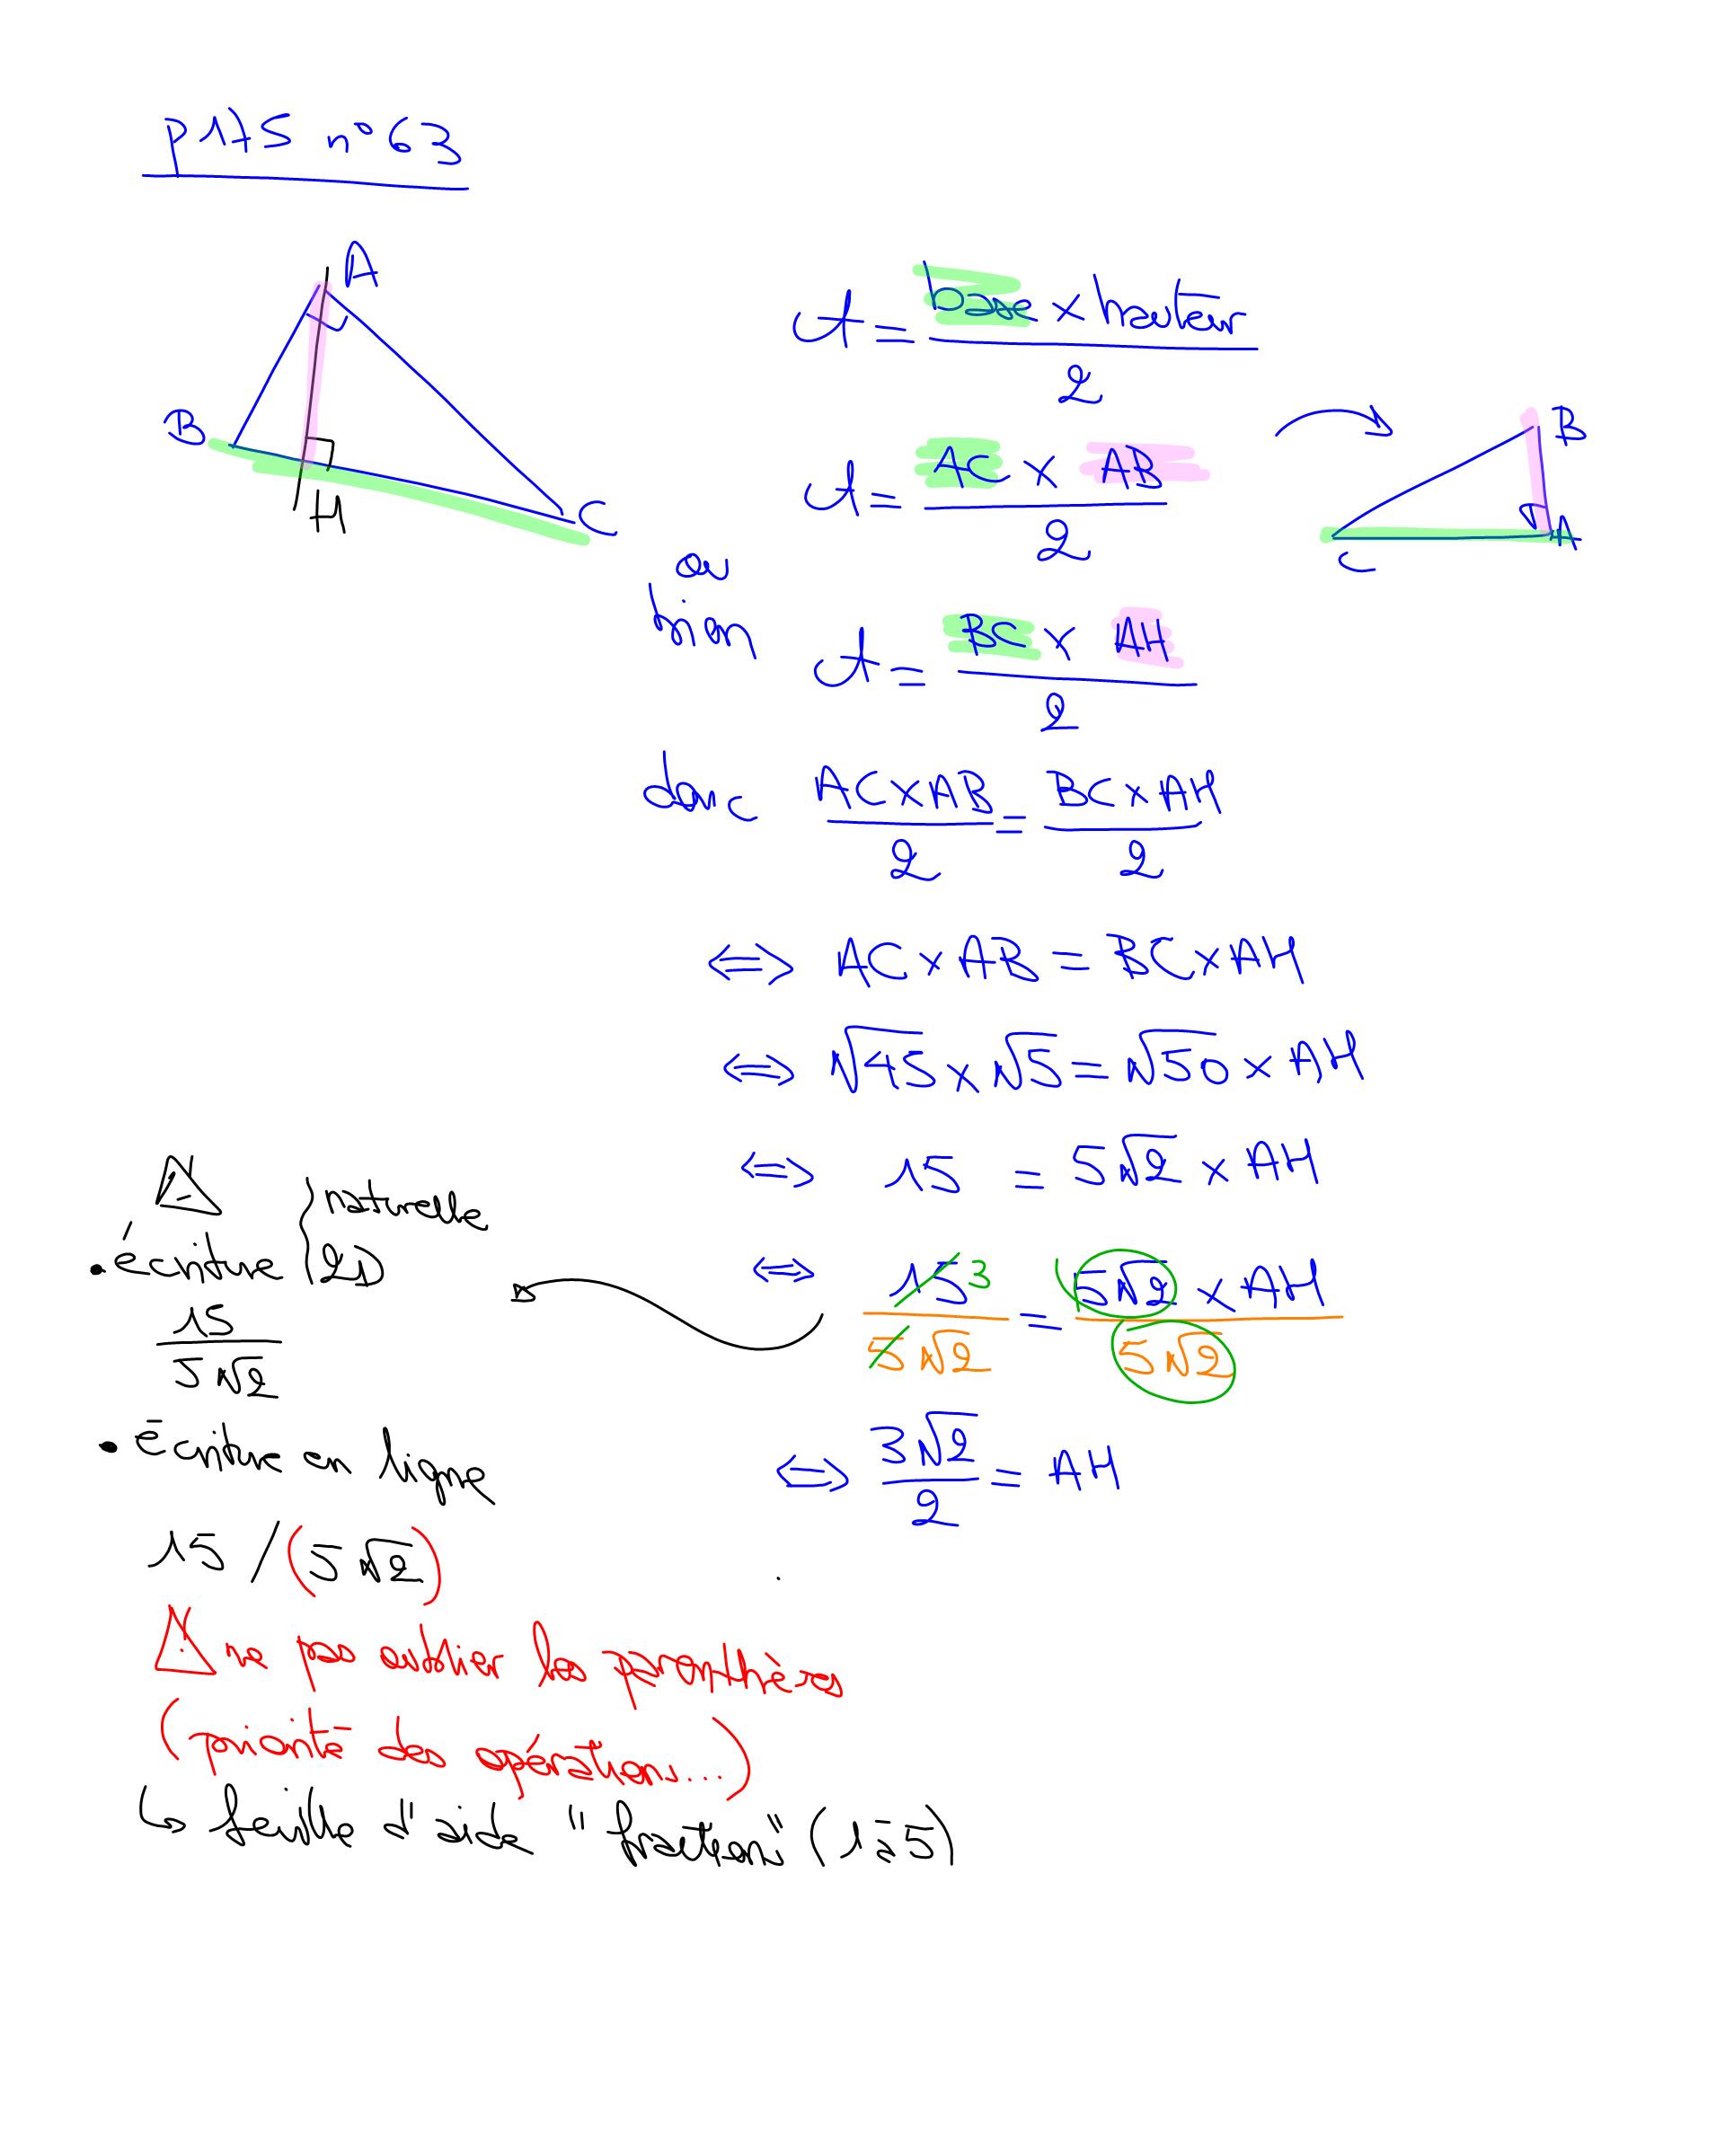 p175 n°63
A
B
H
C
A = base × hauteur / 2
A = AC × AB / 2
B
A
C
ou
bien
A = BC × AH / 2
donc AC×AB / 2 = BC×AH / 2
⟺ AC×AB = BC×AH
⟺ √45 × √5 = √50 × AH
⟺ 15 = 5√2 × AH
⟺ 15 3 / 5√2 = 5√2 × AH / 5√2
⟺ 3√2 / 2 = AH
• écriture { naturelle
2D
15 / 5√2
• écriture en ligne
15 / (5√2)
⚠ ne pas oublier les parenthèses
(priorité des opérations...)
↳ feuille d'aide "fraction" (1à5)